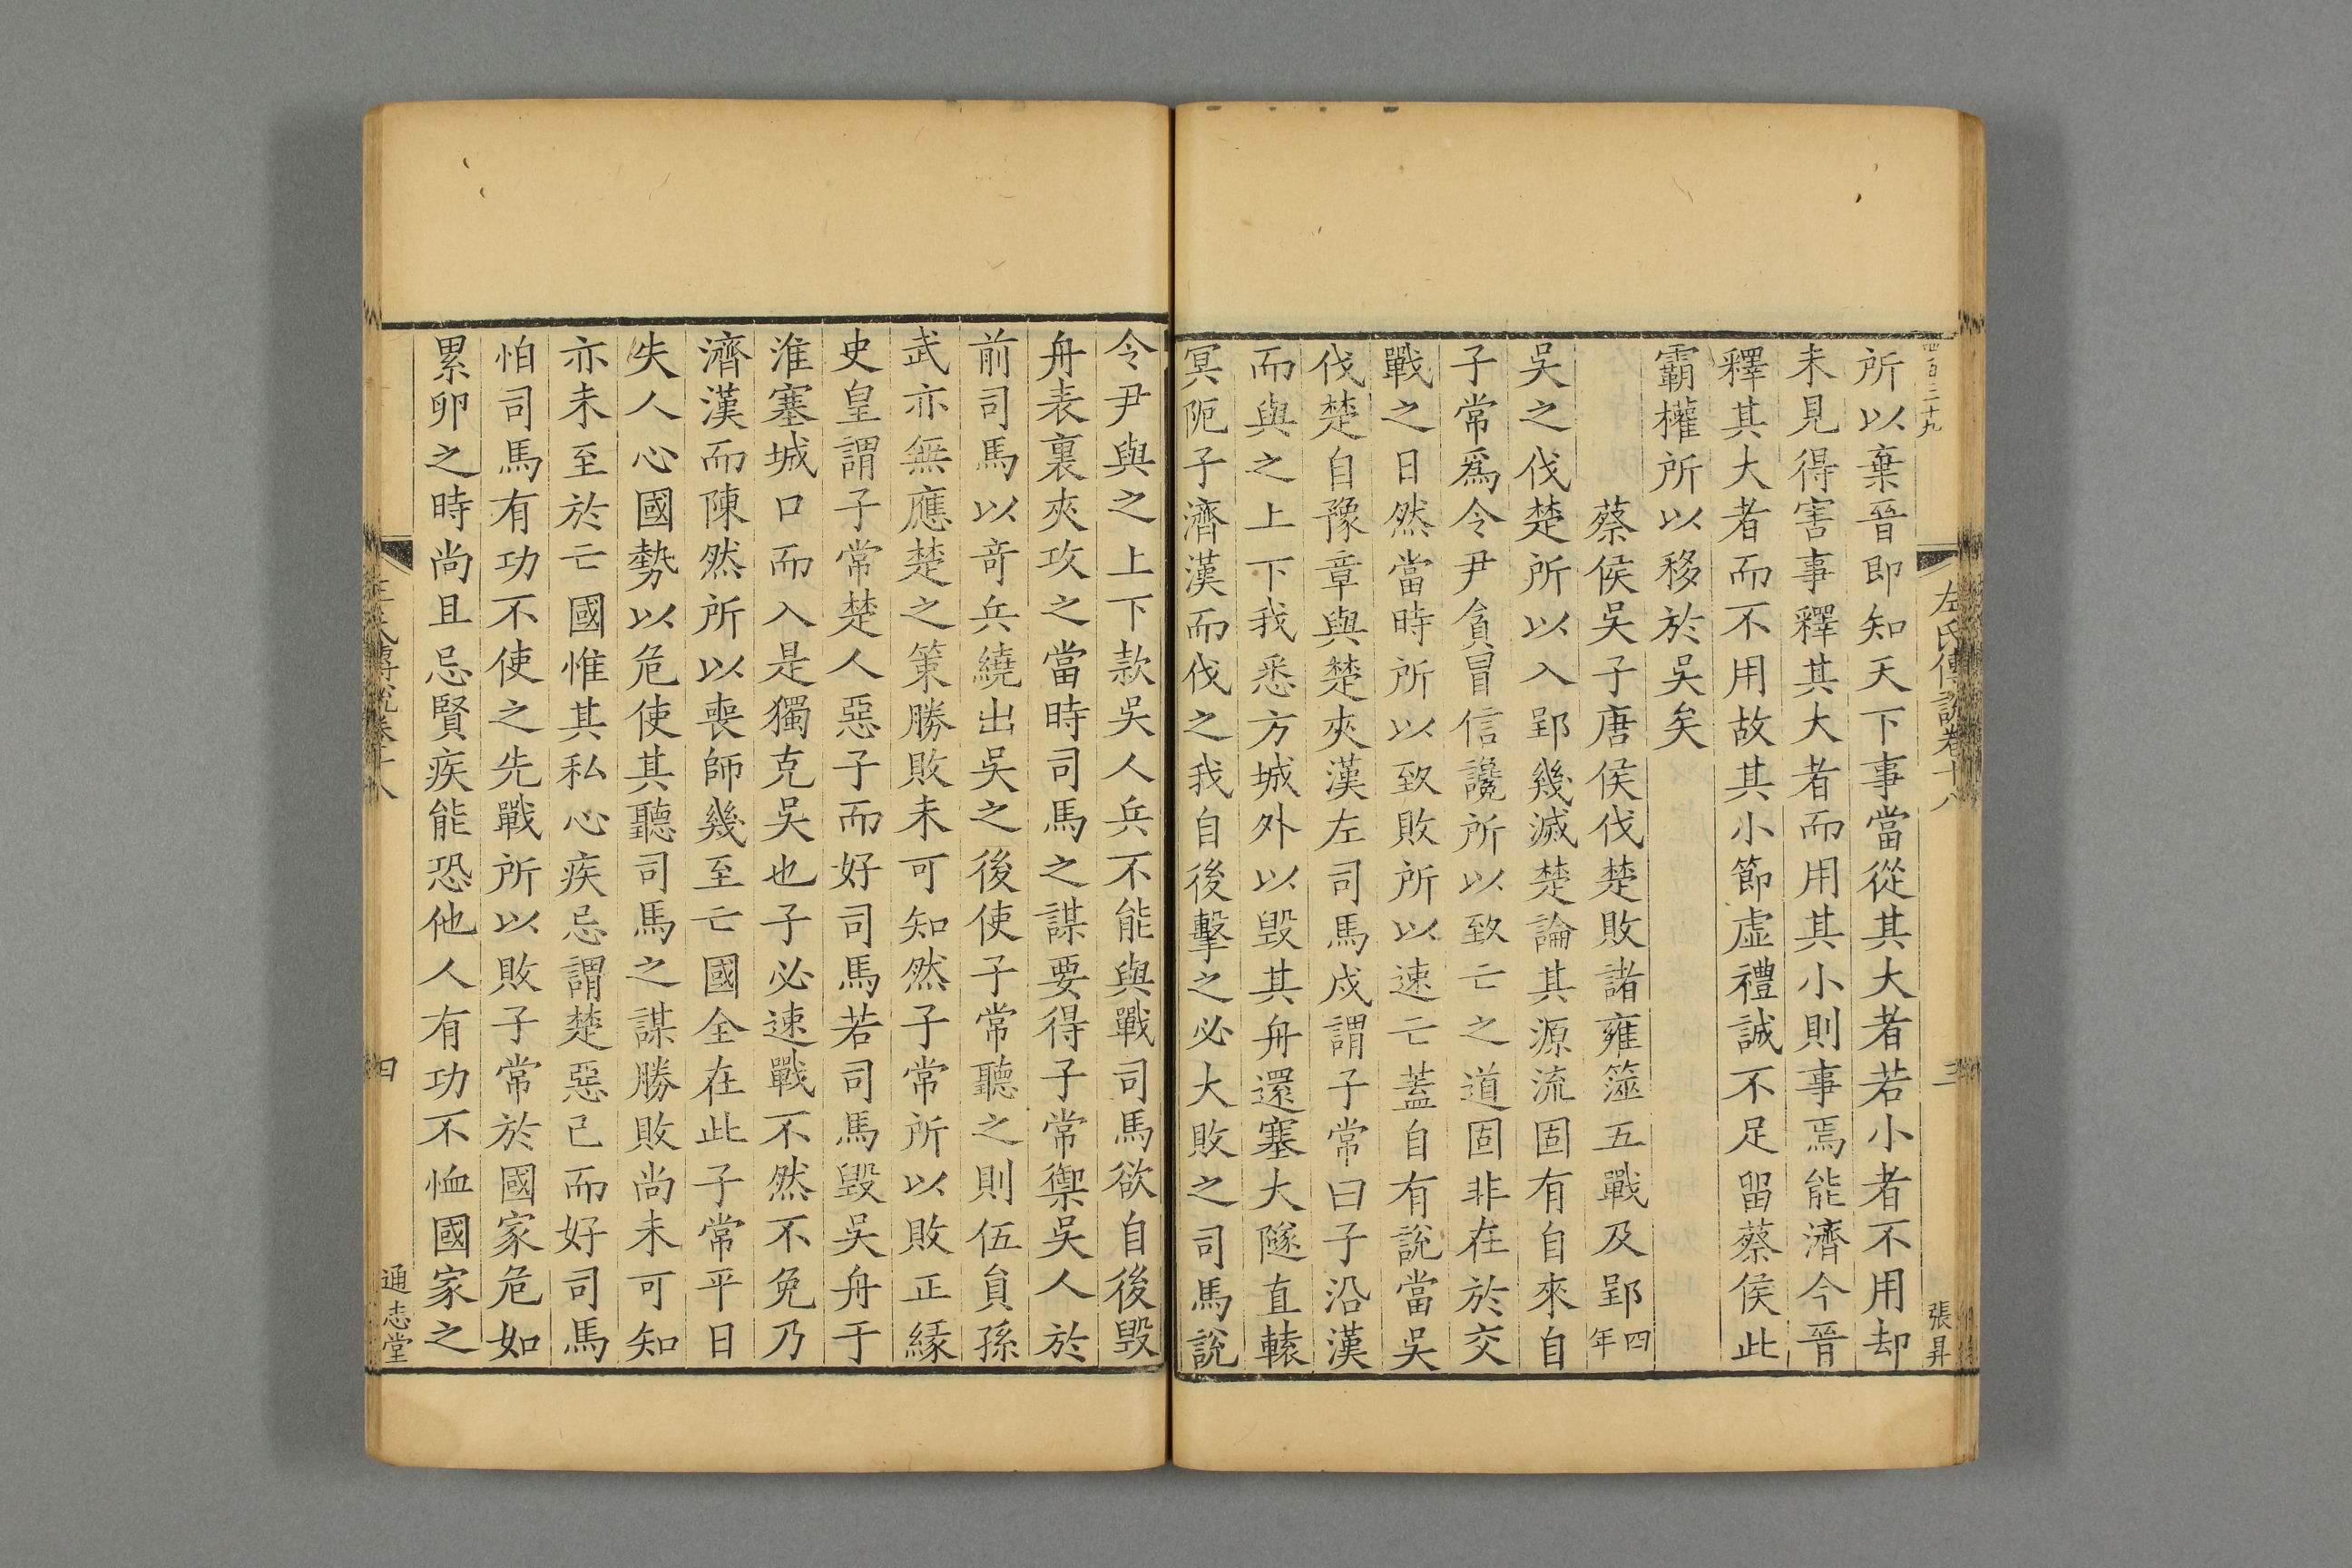 四百三十九
左氏傳說卷十八
三
張昇
所以棄晉即知天下事當從其大者若小者不用却
未見得害事釋其大者而用其小則事焉能濟今晉
釋其大者而不用故其小節虛禮誠不足留蔡侯此
霸權所以移於吳矣
蔡侯吳子唐侯伐楚敗諸雍澨五戰及郢四年
吳之伐楚所以入郢幾滅楚論其源流固有自來自
子常爲令尹貪冒信讒所以致亡之道固非在於交
戰之日然當時所以致敗所以速亡蓋自有說當吳
伐楚自豫章與楚夾漢左司馬戌謂子常曰子沿漢
而與之上下我悉方城外以毀其舟還塞大隧直轅
冥阨子濟漢而伐之我自後擊之必大敗之司馬說
令尹與之上下款吳人兵不能與戰司馬欲自後毀
舟表裏夾攻之當時司馬之謀要得子常禦吳人於
前司馬以竒兵繞出吳之後使子常聽之則伍員孫
武亦無應楚之策勝敗未可知然子常所以敗正緣
史皇謂子常楚人惡子而好司馬若司馬毀吳舟于
淮塞城口而入是獨克吳也子必速戰不然不免乃
濟漢而陳然所以喪師幾至亡國全在此子常平日
失人心國勢以危使其聽司馬之謀勝敗尚未可知
亦未至於亡國惟其私心疾忌謂楚惡己而好司馬
怕司馬有功不使之先戰所以敗子常於國家危如
累卵之時尚且忌賢疾能恐他人有功不恤國家之
左氏傳說卷十八
四
通志堂